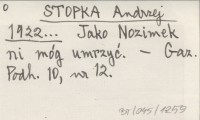 STOPKA Andrzej
1922... Jako Nozimek
ni móg umrzyć. - Gaz.
Podh. 10, nr 12.